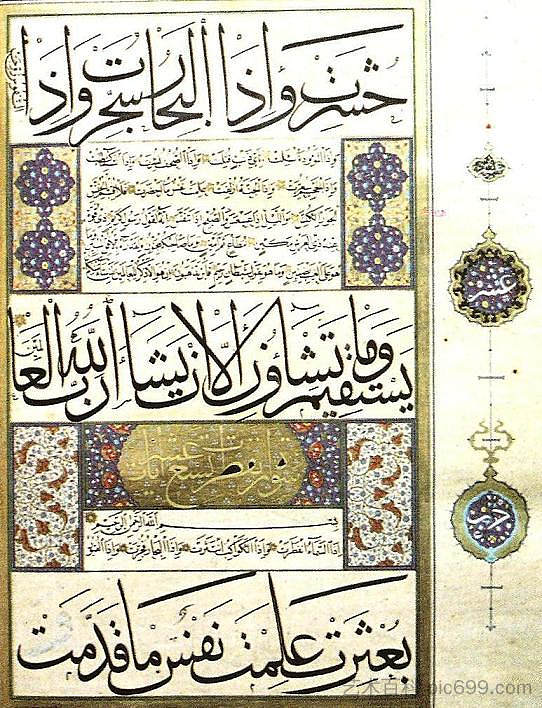 حشرت واذا البحار سجرت واذا
النفوس زوجت
واذا الموءودة سئلت باي ذنب قتلت واذا الصحف نشرت واذا السماء كشطت
واذا الجحيم سعرت واذا الجنة ازلفت علمت نفس ما احضرت فلا اقسم بالخنس
الجوار الكنس والليل اذا عسعس والصبح اذا تنفس انه لقول رسول كريم ذي قوة
عند ذي العرش مكين مطاع ثم امين وما صاحبكم بمجنون ولقد راه بالافق المبين وما
هو على الغيب بضنين وما هو بقول شيطان رجيم فاين تذهبون ان هو الا ذكر للعالمين لمن شاء منكم ان
يستقيم وما تشاؤن الا ان يشا الله رب العالمين
عشر
سورة انفطرت تسع عشر ايات
بسم الله الرحمن الرحيم
حزب
اذا السماء انفطرت واذا الكواكب انتثرت واذا البحار فجرت واذا القبور
بعثرت علمت نفس ما قدمت
艺术百科 pic699.com